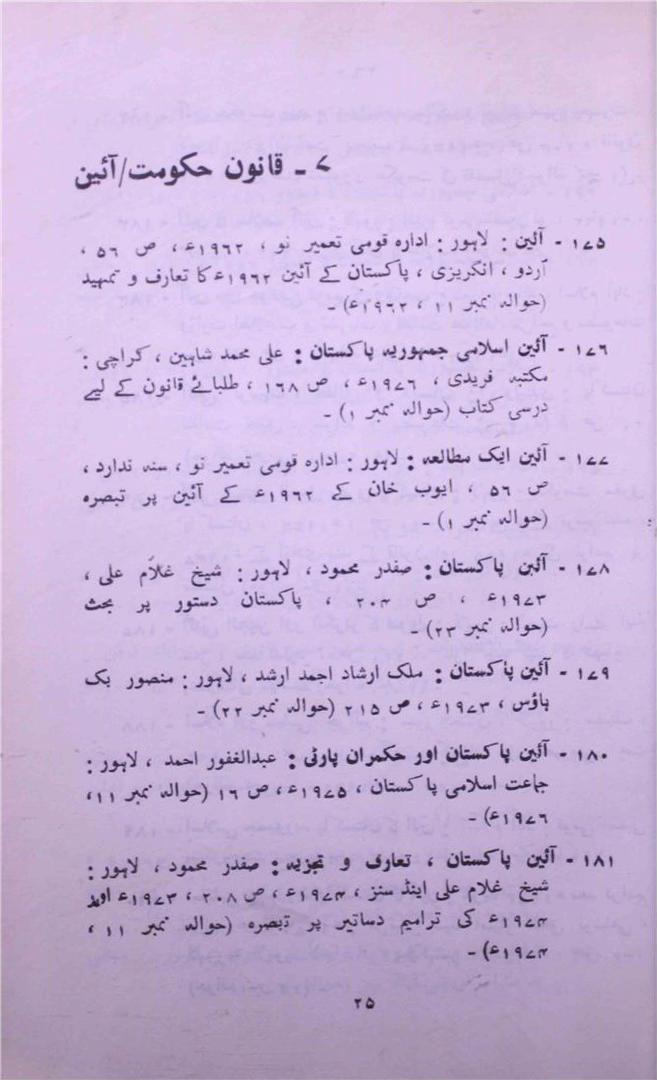 ۷ - قانون حکومت/آئین
۱۷۵ - آئین : لاہور : ادارہ قومی تعمیر نو ، ۱۹۶۲ء ، ص ۵۶ ،
اردو ، انگریزی ، پاکستان کے آئین ۱۹۶۲ء کا تعارف و تمہید
(حوالہ نمبر ۱۱ ، ۱۹۶۲ء) -
۱۷۶ - آئین اسلامی جمہوریہ پاکستان : علی محمد شاہین ، کراچی :
مکتبہ فریدی ، ۱۹۷۶ء ، ص ۱۶۸ ، طلبائے قانون کے لیے
درسی کتاب (حوالہ نمبر ۱) -
۱۷۷ - آئین ایک مطالعہ : لاہور : ادارہ قومی تعمیر نو ، سنہ ندارد ،
ص ۵۶ ، ایوب خان کے ۱۹۶۲ء کے آئین پر تبصرہ
(حوالہ نمبر ۱) -
۱۷۸ - آئین پاکستان : صفدر محمود ، لاہور : شیخ غلام علی ،
۱۹۷۳ء ، ص ۲۰۴ ، پاکستان دستور پر بحث
(حوالہ نمبر ۲۳) -
۱۷۹ - آئین پاکستان : ملک ارشاد احمد ارشد ، لاہور : منصور بک
ہاؤس ، ۱۹۷۳ء ، ص ۲۱۵ (حوالہ نمبر ۲۲) -
۱۸۰ - آئین پاکستان اور حکمران پارٹی : عبدالغفور احمد ، لاہور :
جماعت اسلامی پاکستان ، ۱۹۷۵ء ، ص ۱۶ (حوالہ نمبر ۱۱ ،
۱۹۷۶ء) -
۱۸۱ - آئین پاکستان ، تعارف و تجزیہ : صفدر محمود ، لاہور :
شیخ غلام علی اینڈ سنز ، ۱۹۷۴ء ، ص ۲۰۸ ، ۱۹۷۳ء اور
۱۹۷۴ء کی ترامیم دساتیر پر تبصرہ (حوالہ نمبر ۱۱ ،
۱۹۷۴ء) -
۲۵